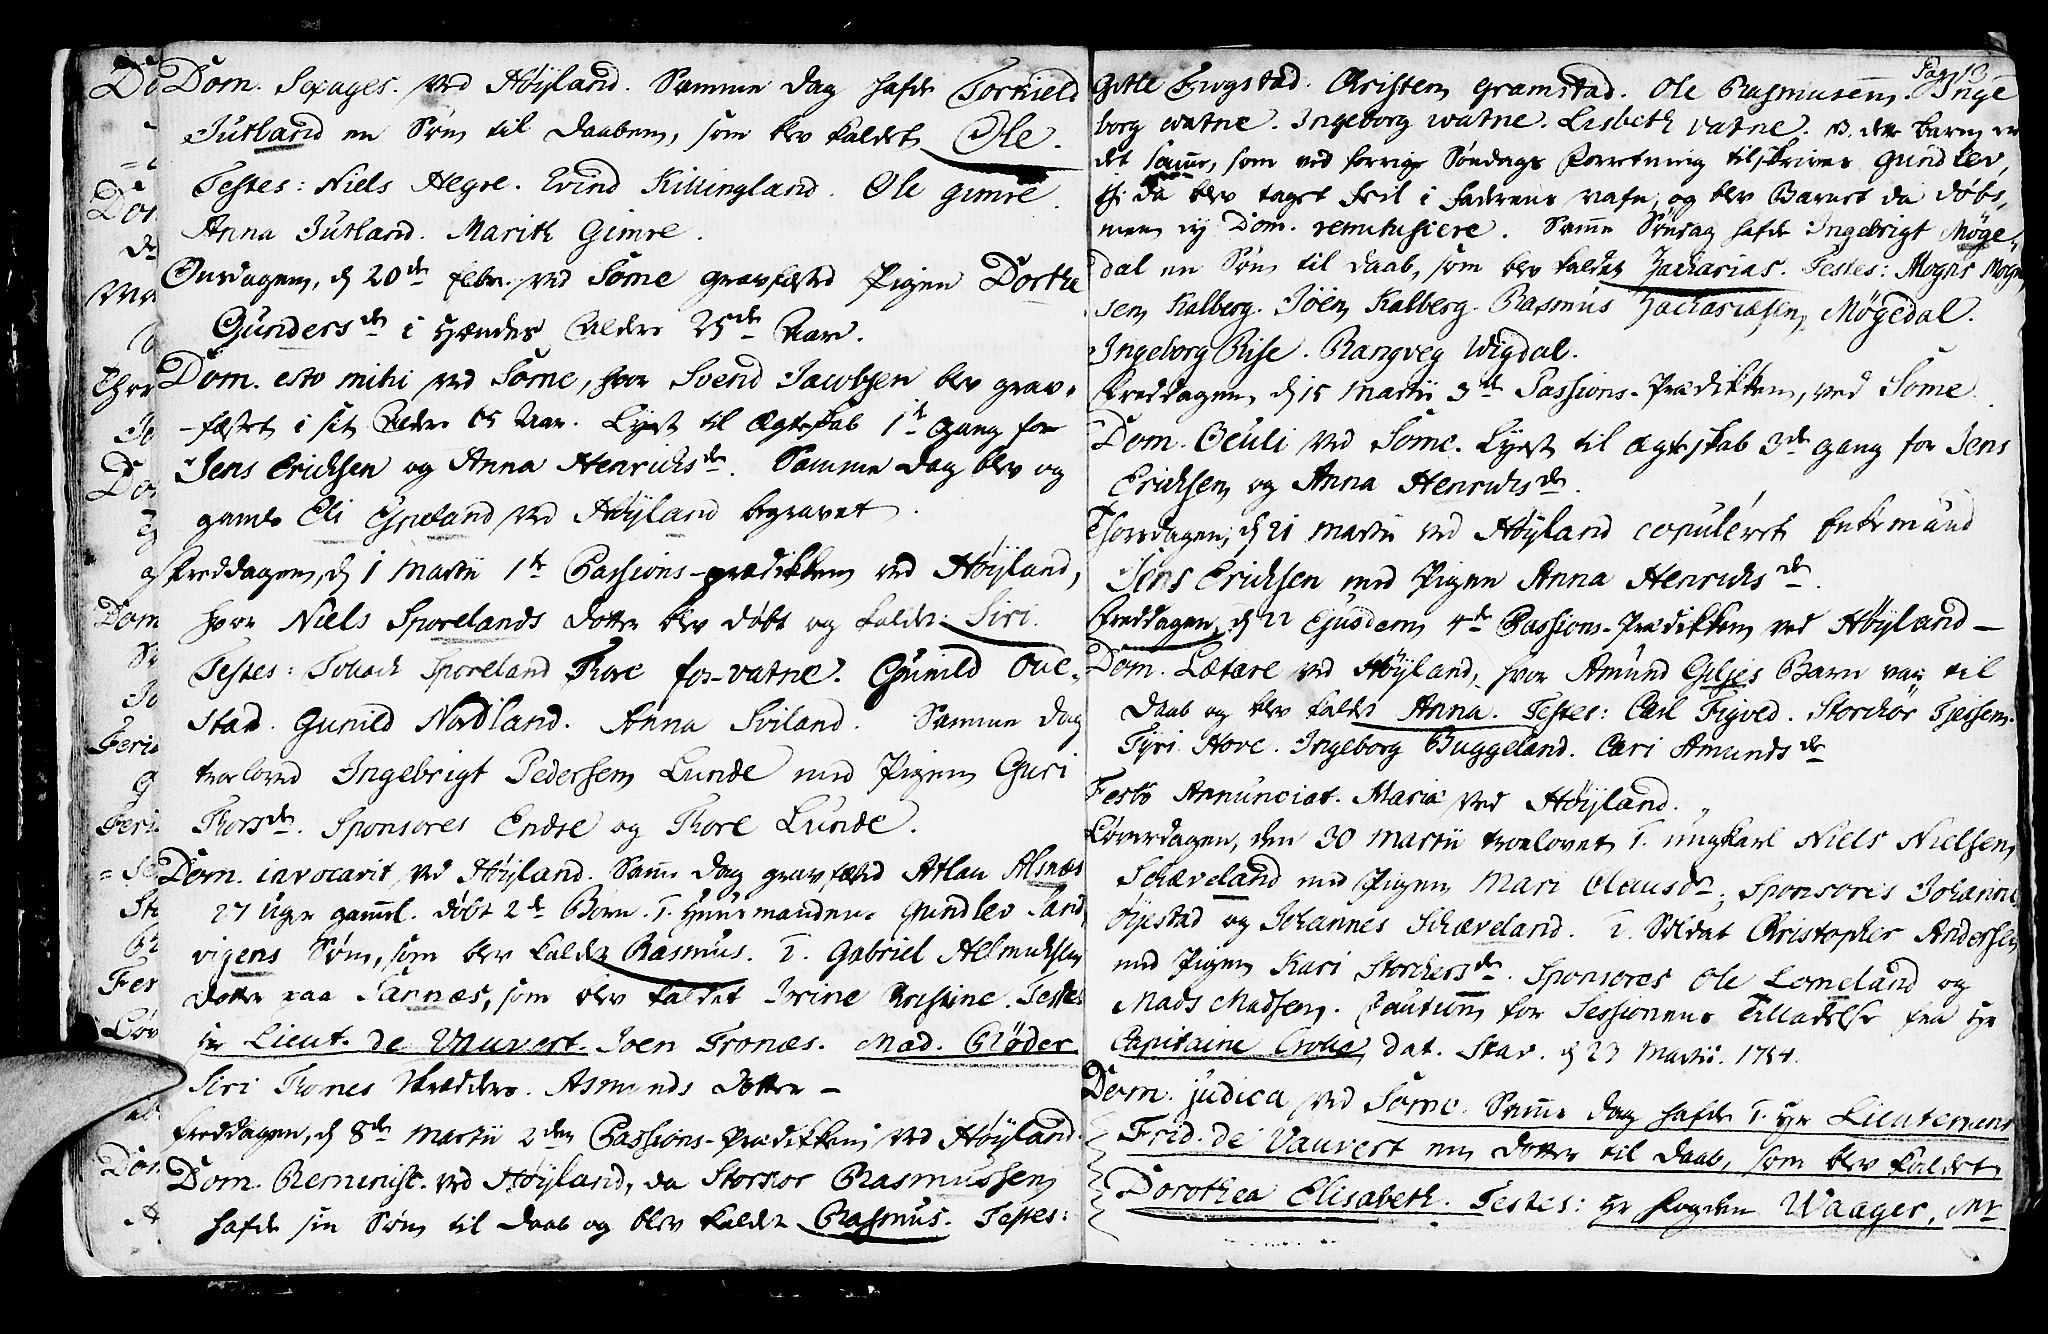 Dom. Sexages. ved Höÿland. Samme Dag hafde Torkield
Jutland en Søn til Daaben, som blev kaldet Ole.
Testes: Niels Hegre. Evind Killingland. Ole Gimre.
Anna Jutland. Marith Gimre.
Onsdagen, d 20de Febr. ved Some gravfæsted Pigen Dorthe
Gundersdr i hendes Alders 25de Aar.
Dom. esto mihi ved Some, hvor Svend Jacobsen blev grav-
fæstet i sit Alders 65 Aar. Lyst til Ægteskab 1te Gang for
Jens Erichsen og Anna Henrichsdr. Samme Dag blev og
gamle Eli Espeland ved Höÿland begravet.
Freddagen, d 1 Martii 1te Passions-prædikken ved Höÿland,
hvor Niels Sporelands Dotter blev døbt og kaldet Siri.
Testes: Sporeland Thore fos-vatne. Gunild Oue-
stad. Gunild Nordland. Anna Sviland. Samme Dag
trolovet Ingebrigt Pedersen Lunde med Pigen Guri
Thorsdr. Sponsores Endre og Thore Lunde.
Dom. invocavit, ved Höÿland. Samme Dag gravfæsted Atlau Alsnæs
27 Uger gammel. døbt 2de Børn. 1. Huusmanden Gundlev Sand-
vigens Søn, som blev kaldet Rasmus. 2. Gabriel Helmichsen
Dotter paa Sannæs, som blev kaldet Jorine Kristine. Testes
Hr Lieut. de Vauvert. Joen Tronæs. Mad. Rlöder
Siri Thomes Skredders. Asmunds Dotter -
Freddagen, d 8de Martii 2den Passions-Prædikken ved Höÿland.
Dom. Reminisc. ved Höÿland, da Storkor Rasmussen
hafde sin Søn til Daab og blev kaldet Rasmus. Testes:
Pag. 13
Gitle Frogstad. Christen Gramstad. Ole Rasmussen. Inge-
borg watne. Ingeborg watne. Lisbeth vatne. NB. dette Barn er
det samme, som ved forrige Søndags Forretning tilskrives Gundlev,
thi da blev taget Feil i Faderens Nafn, og blev Barnet da døbt,
men ey Dom. reminiscere. Samme Søndag hafde Ingebrigt Möge-
dal en Søn til Daab, som blev kaldet Zacharias. Testes: Mogns Mogn-
sen Kalberg. Joen Kalberg. Rasmus Zachariasen Mögedal.
Ingeborg Rise. Rangveg Wigdal.
Freddagen, d 15 Martii 3de Passions-Prædikken, ved Some.
Dom. Oculi ved Some. Lyst til Ægteskab 3de gang for Jens
Erichsen og Anna Henrichsdr.
Thorsdagen, d 21 Martii ved Höÿland copuleret Enkemand
Jens Erichsen med Pigen Anna Henrichsdr.
Freddagen, d 22 Ejusdem 4de Passions-Prædikken ved Höÿland -
Dom. Lætare ved Höÿland, hvor Amund Giljes Barn var til
Daab og blev kaldet Anna. Testes: Carl Figved. Storckor Tjessem.
Tyri Hove. Ingeborg Buggeland. Cari Amundsdr
Festo Annunciat. Mariæ ved Höÿland.
Løverdagen, den 30 Martii trolovet 1. ungkarl Niels Nielsen
Schæveland med Pigen Mari Clausdr; Sponsores Johannes
Öjestad og Johannes Schæveland. 2. Soldat Christopher Andersen
med Pigen Kari Storckersdr. Sponsores Ole Lomeland og
Mads Madsen. Caution for Sessionens Tilladelse fra Hr
Capitaine Dat. Stav. d 23 Martii. 1754.
Dom. judica ved Some. Samme Dag hafde T. Hr Lieutenent
Frid. de Vauvert en Dotter til Daab, som blev kaldet
Dorothea Elisabeth. Testes: Hr Fogden Waager, Mr